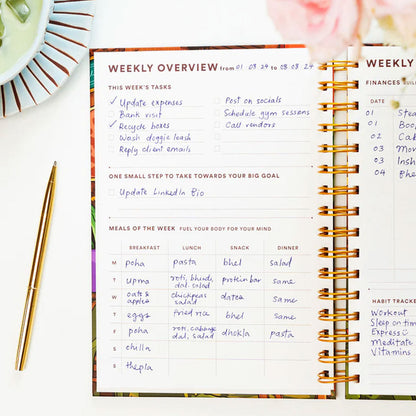 WEEKLY OVERVIEW from 01 08 24 to 08 08 24
THIS WEEK'S TASKS
Update expenses
Bank visit
Recycle boxes
Wash doggie leash
Reply client emails
Post on socials
Schedule gym sessions
Call vendors
ONE SMALL STEP TO TAKE TOWARDS YOUR BIG GOAL
Update LinkedIn Bio
MEALS OF THE WEEK FUEL YOUR BODY FOR YOUR MIND
BREAKFAST LUNCH SNACK DINNER
M poha pasta bhel salad
T upma roti, bhindi, dal, salad protein bar same
W oats & apples chickpeas salad dates same
T eggs fried rice bhel same
F poha roti, cabbage, dal, salad dhokla pasta
S chilla
S thepla
FINANCES
DATE
01
01
02
03
03
04
HABIT TRACKE
Workout
Sleep on time
Express
Meditate
Vitamins